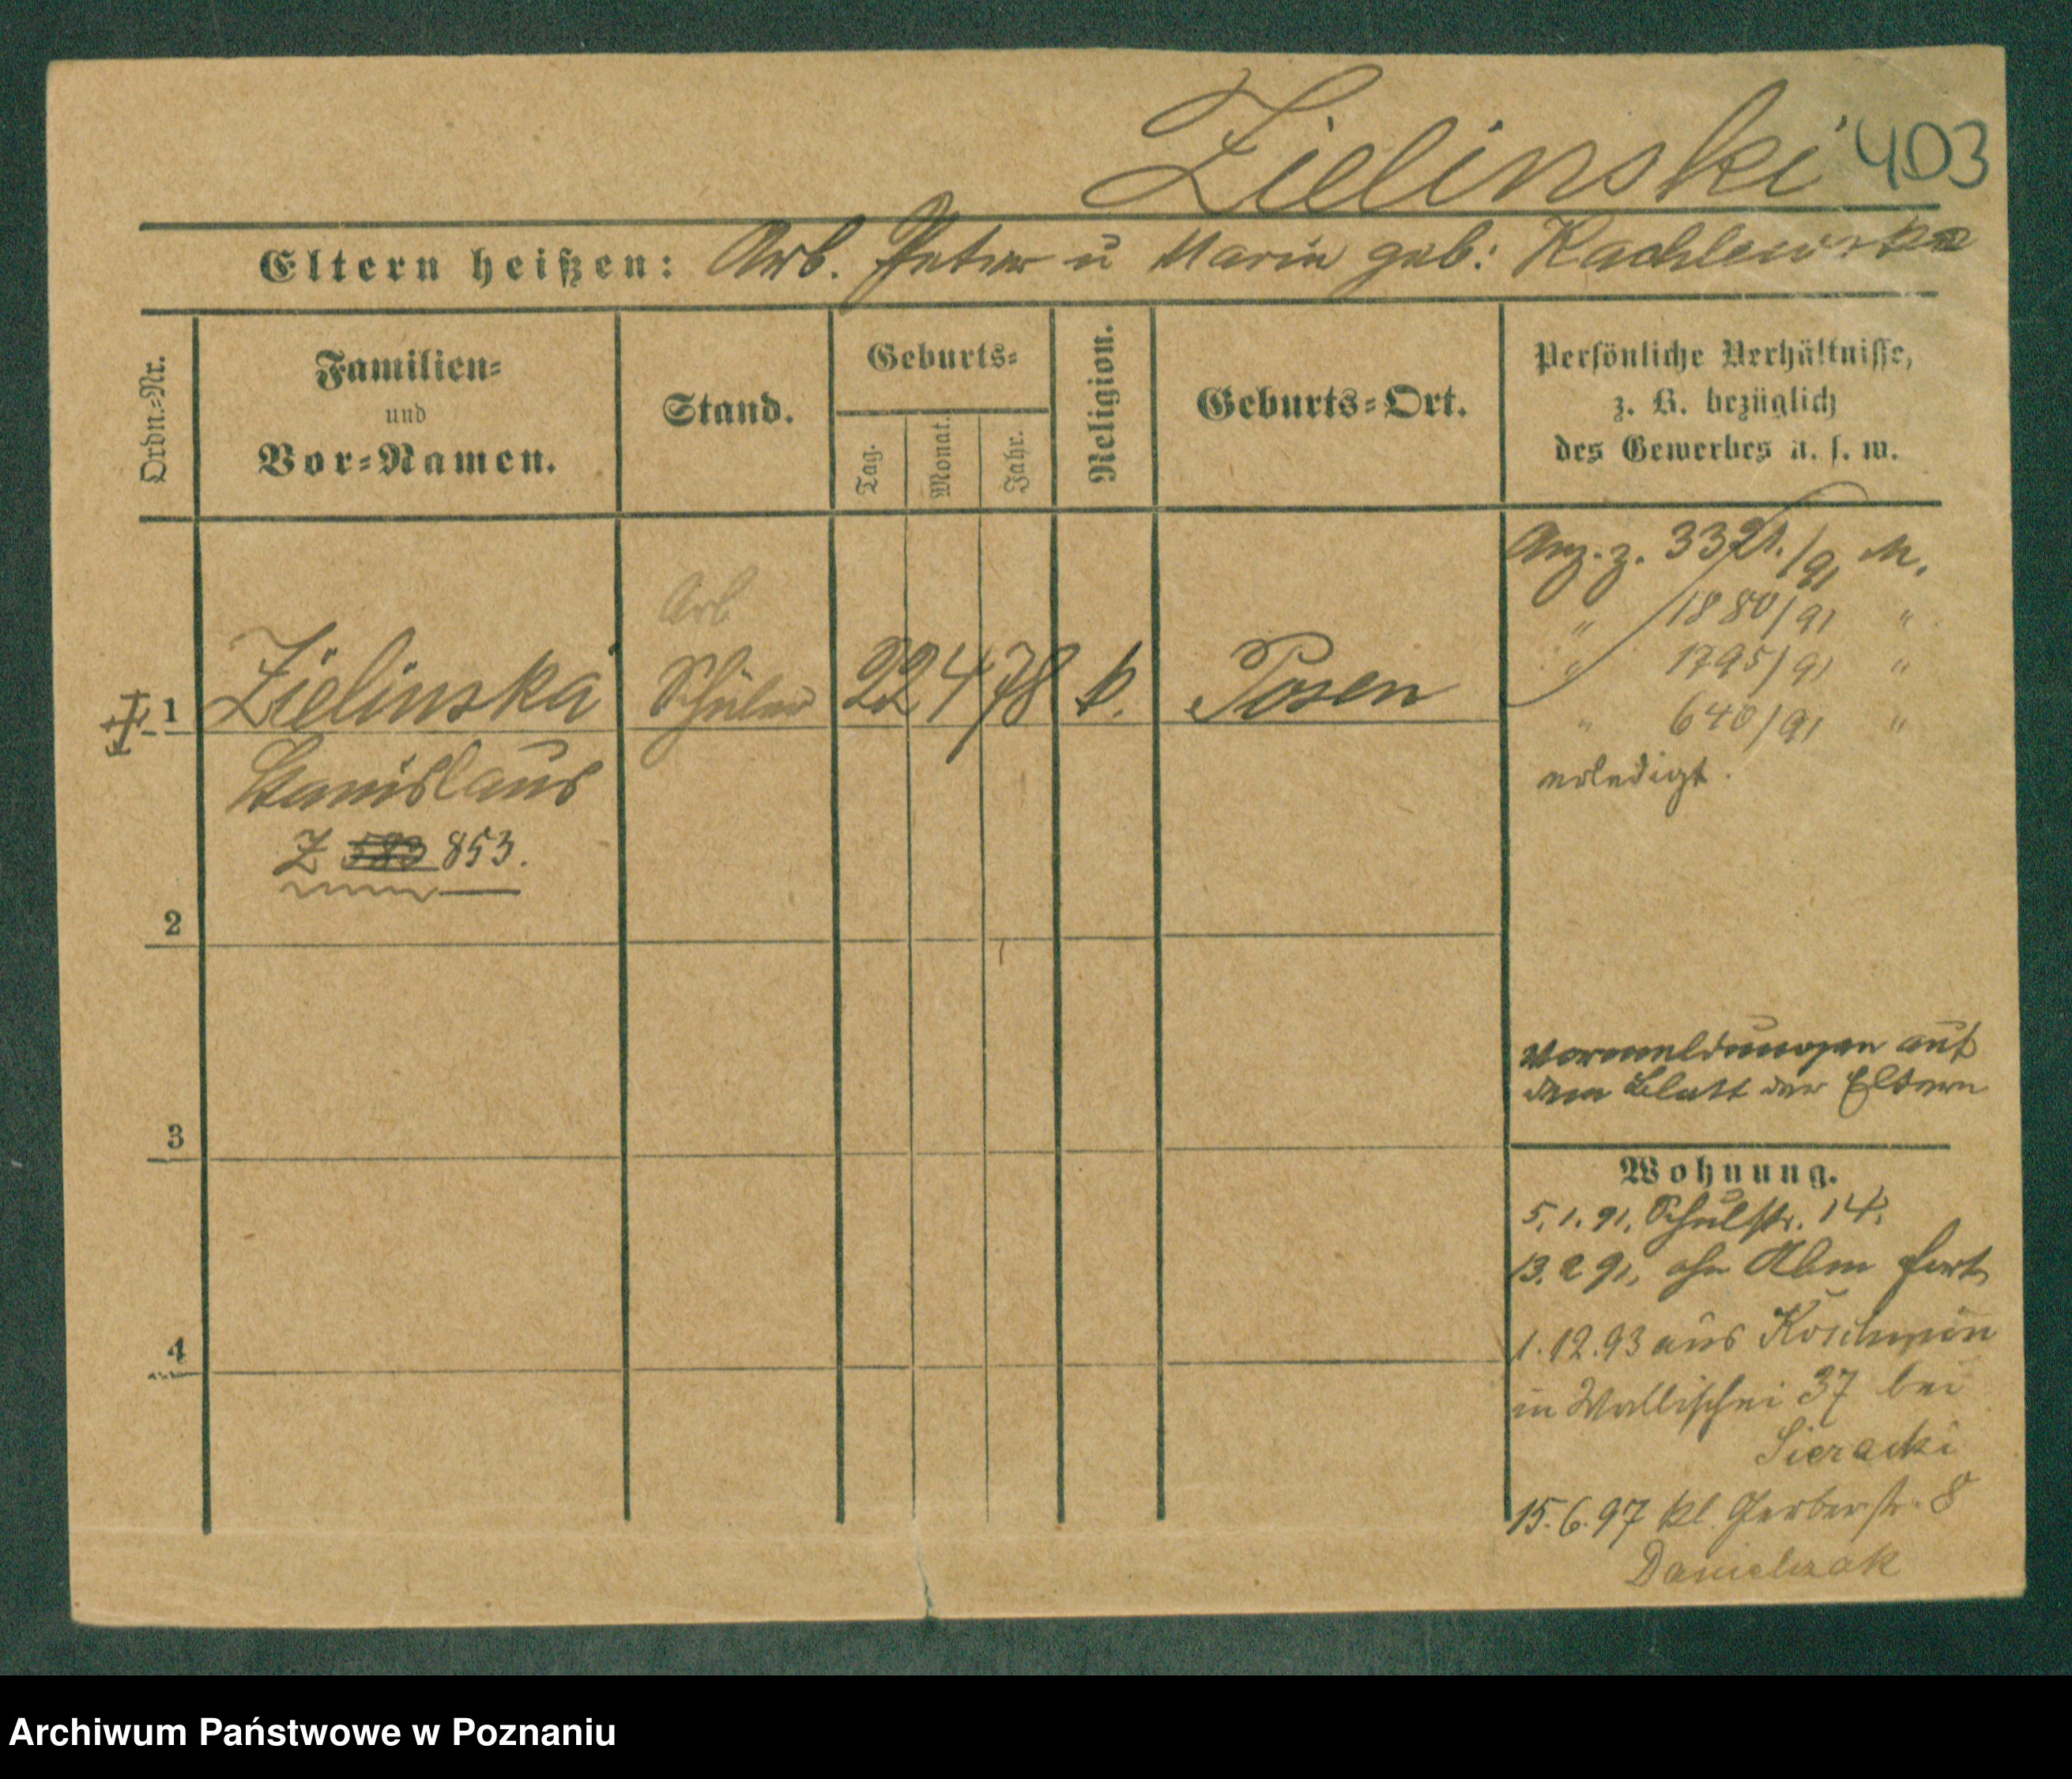 Zielinski 403
Eltern heißen: Arb. Peter u Marie geb: Kachlewska
Ordn.-Nr.
Familien-
und
Vor-Namen.
Stand.
Geburts-
Tag.
Monat.
Jahr.
Religion.
Geburts-Ort.
Persönliche Verhältnisse,
z. B. bezüglich
des Gewerbes u. s. w.
Anz. z. 3321./91 M.
" 1880/91 "
" 1795/91 "
" 640/91 "
erledigt.
Arb
1 Zielinski Schüler 22 4 78 k. Posen
Stanislaus
Z 583 853.
2
3
4
Vormeldungen auf
dem Blatt der Eltern
Wohnung.
5.1.91, Schulstr. 14.
13.2 91, ohn Abm fort
1.12.93 aus Koschmin
in Wallischei 37 bei
Sieracki
15.6.97 kl. Gerberstr. 8
Danielczak
Archiwum Państwowe w Poznaniu